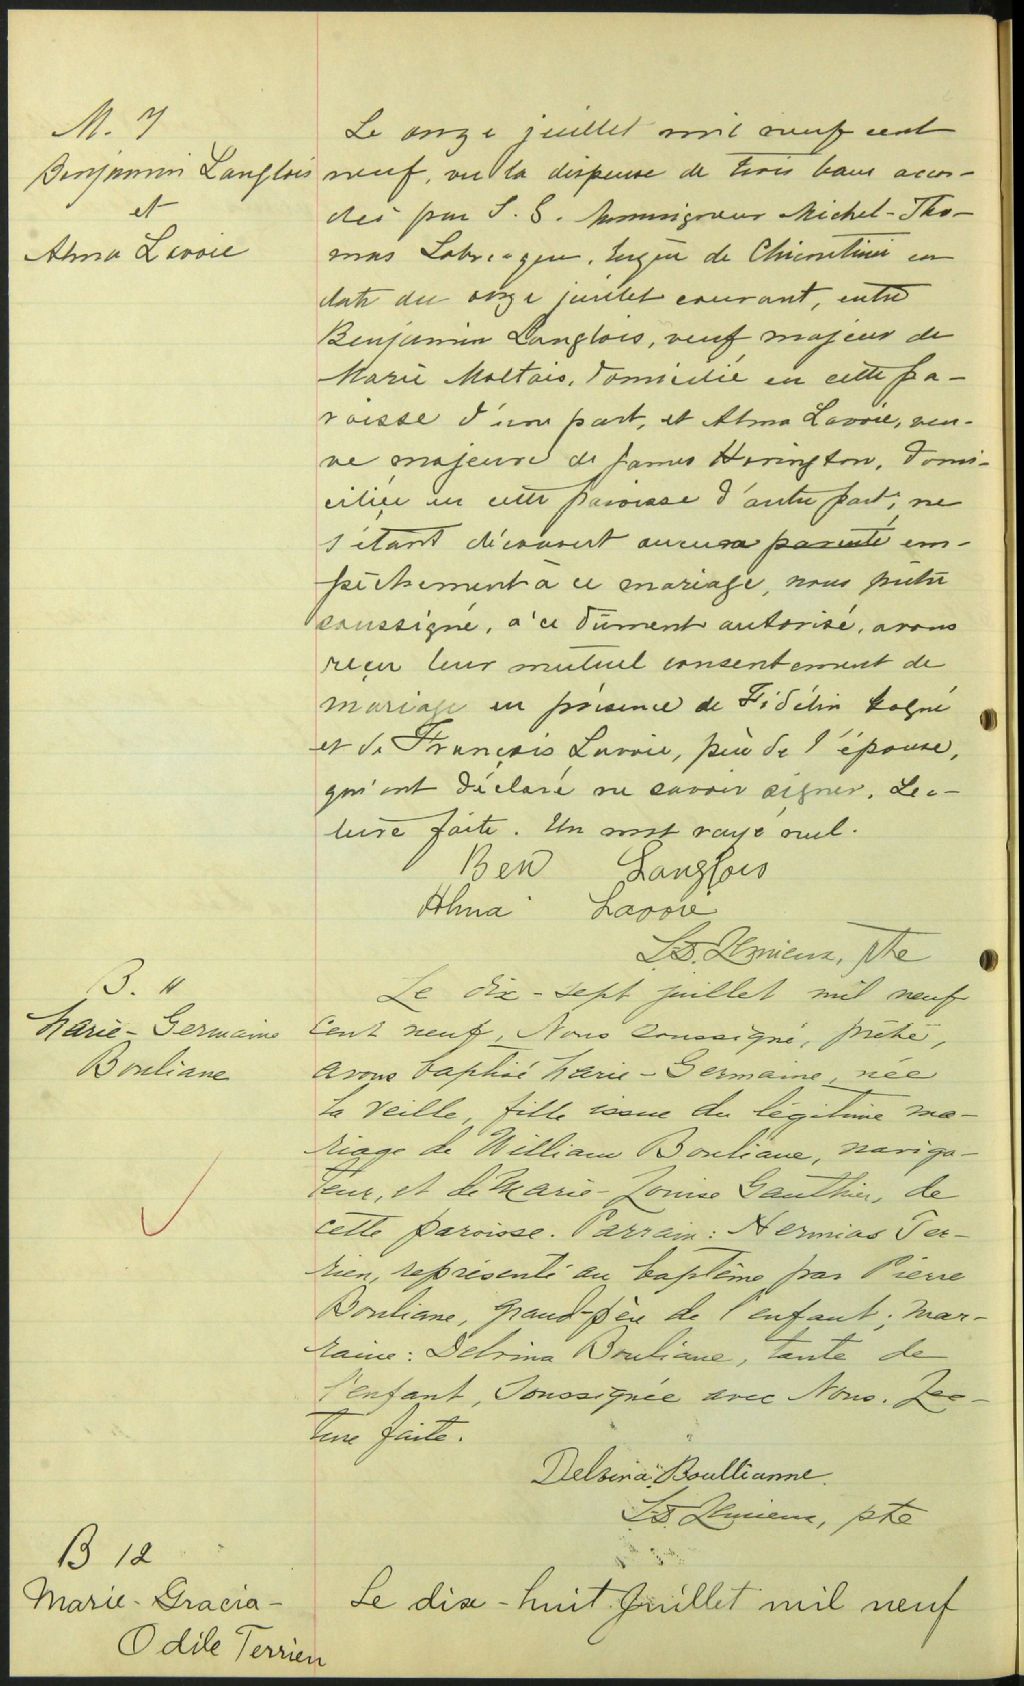 M. 7
Benjamin Langlois
et
Alma Lavoie
Le onze juillet mil neuf cent
neuf, vu la dispense de trois bans accor-
dée par S. G. Monseigneur Michel-Tho-
mas Labrecque, évêque de Chicoutimi en
date du onze juillet courant, entre
Benjamin Langlois, veuf majeur de
Marie Maltais, domicilié en cette pa-
roisse d'une part, et Alma Lavoie, veu-
ve majeure de James Harington, domi-
ciliée en cette paroisse d'autre part; ne
s'étant découvert aucun parenté em-
pêchement à ce mariage, nous prêtre
soussigné, à ce dûment autorisé, avons
reçu leur mutuel consentement de
mariage en présence de Fidélin
et de François Lavoie, père de l'épouse,
qui ont déclaré ne savoir signer. Lec-
ture faite. Un mot rayé nul.
Ben Langlois
Alma Lavoie
Lemieux, ptre
B. 11
Marie-Germaine
Bouliane
Le dix-sept juillet mil neuf
cent neuf, Nous soussigné, prêtre,
avons baptisé Marie-Germaine, née
la veille, fille issue du légitime ma-
riage de William Bouliane, naviga-
teur, et de Marie-Louise Gauthier, de
cette paroisse. Parrain: Hermias Ter-
rien, représenté au baptême par Pierre
Bouliane, grand-père de l'enfant; mar-
raine: Delvina Bouliane, tante de
l'enfant, soussignée avec Nous. Lec-
ture faite.
Delvina Boullianne
Lemieux, ptre
B 12
Marie-Gracia-
Odile Terrien
Le dix-huit Juillet mil neuf